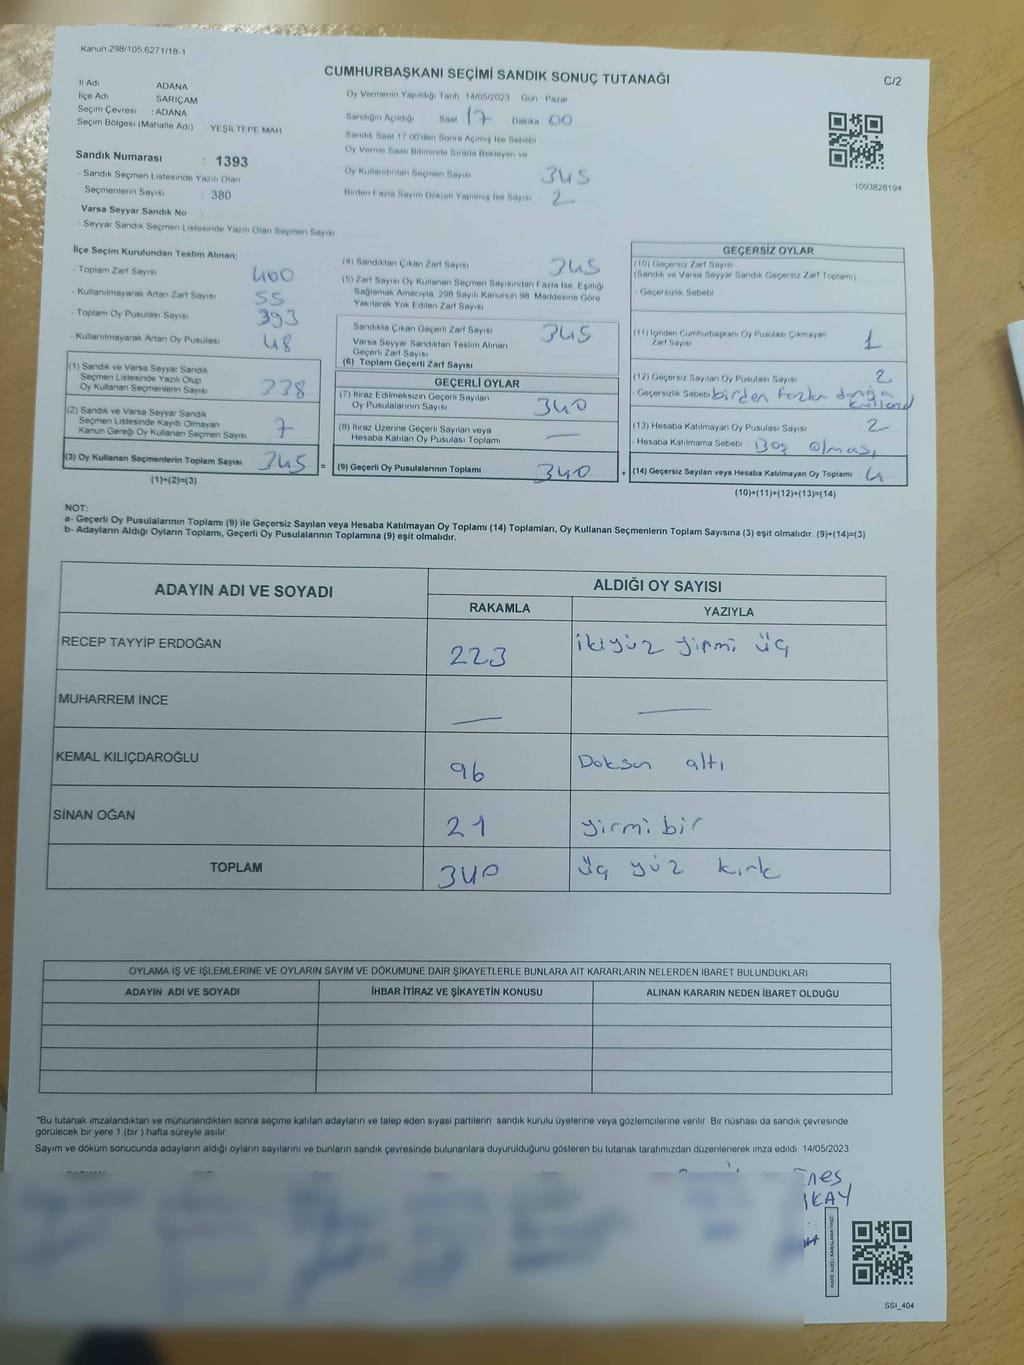 Kanun 298/105,6271/18-1
CUMHURBAŞKANI SEÇİMİ SANDIK SONUÇ TUTANAĞI
C/2
İl Adı ADANA
İlçe Adı SARIÇAM
Seçim Çevresi : ADANA
Seçim Bölgesi (Mahalle Adı) YEŞİLTEPE MAH
Sandık Numarası : 1393
- Sandık Seçmen Listesinde Yazılı Olan
Seçmenlerin Sayısı : 380
Varsa Seyyar Sandık No
- Seyyar Sandık Seçmen Listesinde Yazılı Olan Seçmen Sayısı
Oy Vermenin Yapıldığı Tarih 14/05/2023 Gün Pazar
Sandığın Açıldığı Saat 17 Dakika 00
Sandık Saat 17.00'den Sonra Açılmış İse Sebebi
Oy Verme Saati Bitiminde Sırada Bekleyen ve
Oy Kullandırılan Seçmen Sayısı 345
Birden Fazla Sayım Döküm Yapılmış İse Sayısı 2
1093828194
İlçe Seçim Kurulundan Teslim Alınan;
- Toplam Zarf Sayısı 400
- Kullanılmayarak Artan Zarf Sayısı 55
- Toplam Oy Pusulası Sayısı 393
- Kullanılmayarak Artan Oy Pusulası 48
(1) Sandık ve Varsa Seyyar Sandık
Seçmen Listesinde Yazılı Olup
Oy Kullanan Seçmenlerin Sayısı 338
(2) Sandık ve Varsa Seyyar Sandık
Seçmen Listesinde Kayıtlı Olmayan
Kanun Gereği Oy Kullanan Seçmen Sayısı 7
(3) Oy Kullanan Seçmenlerin Toplam Sayısı 345 =
(1)+(2)=(3)
(4) Sandıktan Çıkan Zarf Sayısı 345
(5) Zarf Sayısı Oy Kullanan Seçmen Sayısından Fazla İse, Eşitliği
Sağlamak Amacıyla, 298 Sayılı Kanunun 98. Maddesine Göre
Yakılarak Yok Edilen Zarf Sayısı
Sandıkta Çıkan Geçerli Zarf Sayısı 345
Varsa Seyyar Sandıktan Teslim Alınan
Geçerli Zarf Sayısı
(6) Toplam Geçerli Zarf Sayısı
GEÇERLİ OYLAR
(7) İtiraz Edilmeksizin Geçerli Sayılan
Oy Pusulalarının Sayısı 340
(8) İtiraz Üzerine Geçerli Sayılan veya
Hesaba Katılan Oy Pusulası Toplamı —
(9) Geçerli Oy Pusulalarının Toplamı 340 +
GEÇERSİZ OYLAR
(10) Geçersiz Zarf Sayısı
(Sandık ve Varsa Seyyar Sandık Geçersiz Zarf Toplamı)
- Geçersizlik Sebebi
(11) İçinden Cumhurbaşkanı Oy Pusulası Çıkmayan
Zarf Sayısı 1
(12) Geçersiz Sayılan Oy Pusulası Sayısı 2
- Geçersizlik Sebebi birden fazla
(13) Hesaba Katılmayan Oy Pusulası Sayısı 2
- Hesaba Katılmama Sebebi Boş olması
(14) Geçersiz Sayılan veya Hesaba Katılmayan Oy Toplamı 4
(10)+(11)+(12)+(13)=(14)
NOT:
a- Geçerli Oy Pusulalarının Toplamı (9) ile Geçersiz Sayılan veya Hesaba Katılmayan Oy Toplamı (14) Toplamları, Oy Kullanan Seçmenlerin Toplam Sayısına (3) eşit olmalıdır. (9)+(14)=(3)
b- Adayların Aldığı Oyların Toplamı, Geçerli Oy Pusulalarının Toplamına (9) eşit olmalıdır.
ADAYIN ADI VE SOYADI
ALDIĞI OY SAYISI
RAKAMLA YAZIYLA
RECEP TAYYİP ERDOĞAN 223 ikiyüz yirmi üç
MUHARREM İNCE — —
KEMAL KILIÇDAROĞLU 96 Doksan altı
SİNAN OĞAN 21 yirmi bir
TOPLAM 340 üç yüz kırk
OYLAMA İŞ VE İŞLEMLERİNE VE OYLARIN SAYIM VE DÖKÜMÜNE DAİR ŞİKAYETLERLE BUNLARA AİT KARARLARIN NELERDEN İBARET BULUNDUKLARI
ADAYIN ADI VE SOYADI İHBAR İTİRAZ VE ŞİKAYETİN KONUSU ALINAN KARARIN NEDEN İBARET OLDUĞU
*Bu tutanak imzalandıktan ve mühürlendikten sonra seçime katılan adayların ve talep eden siyasi partilerin sandık kurulu üyelerine veya gözlemcilerine verilir. Bir nüshası da sandık çevresinde
görülecek bir yere 1 (bir) hafta süreyle asılır.
Sayım ve döküm sonucunda adayların aldığı oyların sayılarını ve bunların sandık çevresinde bulunanlara duyurulduğunu gösteren bu tutanak tarafımızdan düzenlenerek imza edildi. 14/05/2023
KARE KODU KARALAMAYINIZ!
SSI_404